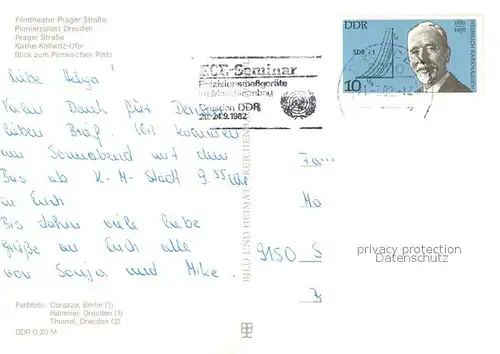 Filmtheatre Prager Straße
Pionierpalast Dresden
Prager Straße
Käthe-Kollwitz-Ufer
Blick zum Pirnaischen Platz
Liebe Helga!
Vielen Dank für Deinen
lieben Brief. Wir kommen
am Sonnabend mit dem
Bus ab K.-M.-Stadt 9.55 Uhr
zu Euch.
Bis dahin viele liebe
Grüße an Euch alle
von Sonja und Mike.
Farbfoto: Corazza, Berlin (1)
Hammer, Dresden (1)
Thienel, Dresden (2)
DDR 0,20 M
BILD UND HEIMAT REICHENBACH
ECE-Seminar
Präzisionsmeßgeräte
im Maschinenbau
Dresden DDR
20.-24.9.1982
DDR
1881
1956
HEINRICH BARKHAUSEN
10
9150 S
privacy protection
Datenschutz